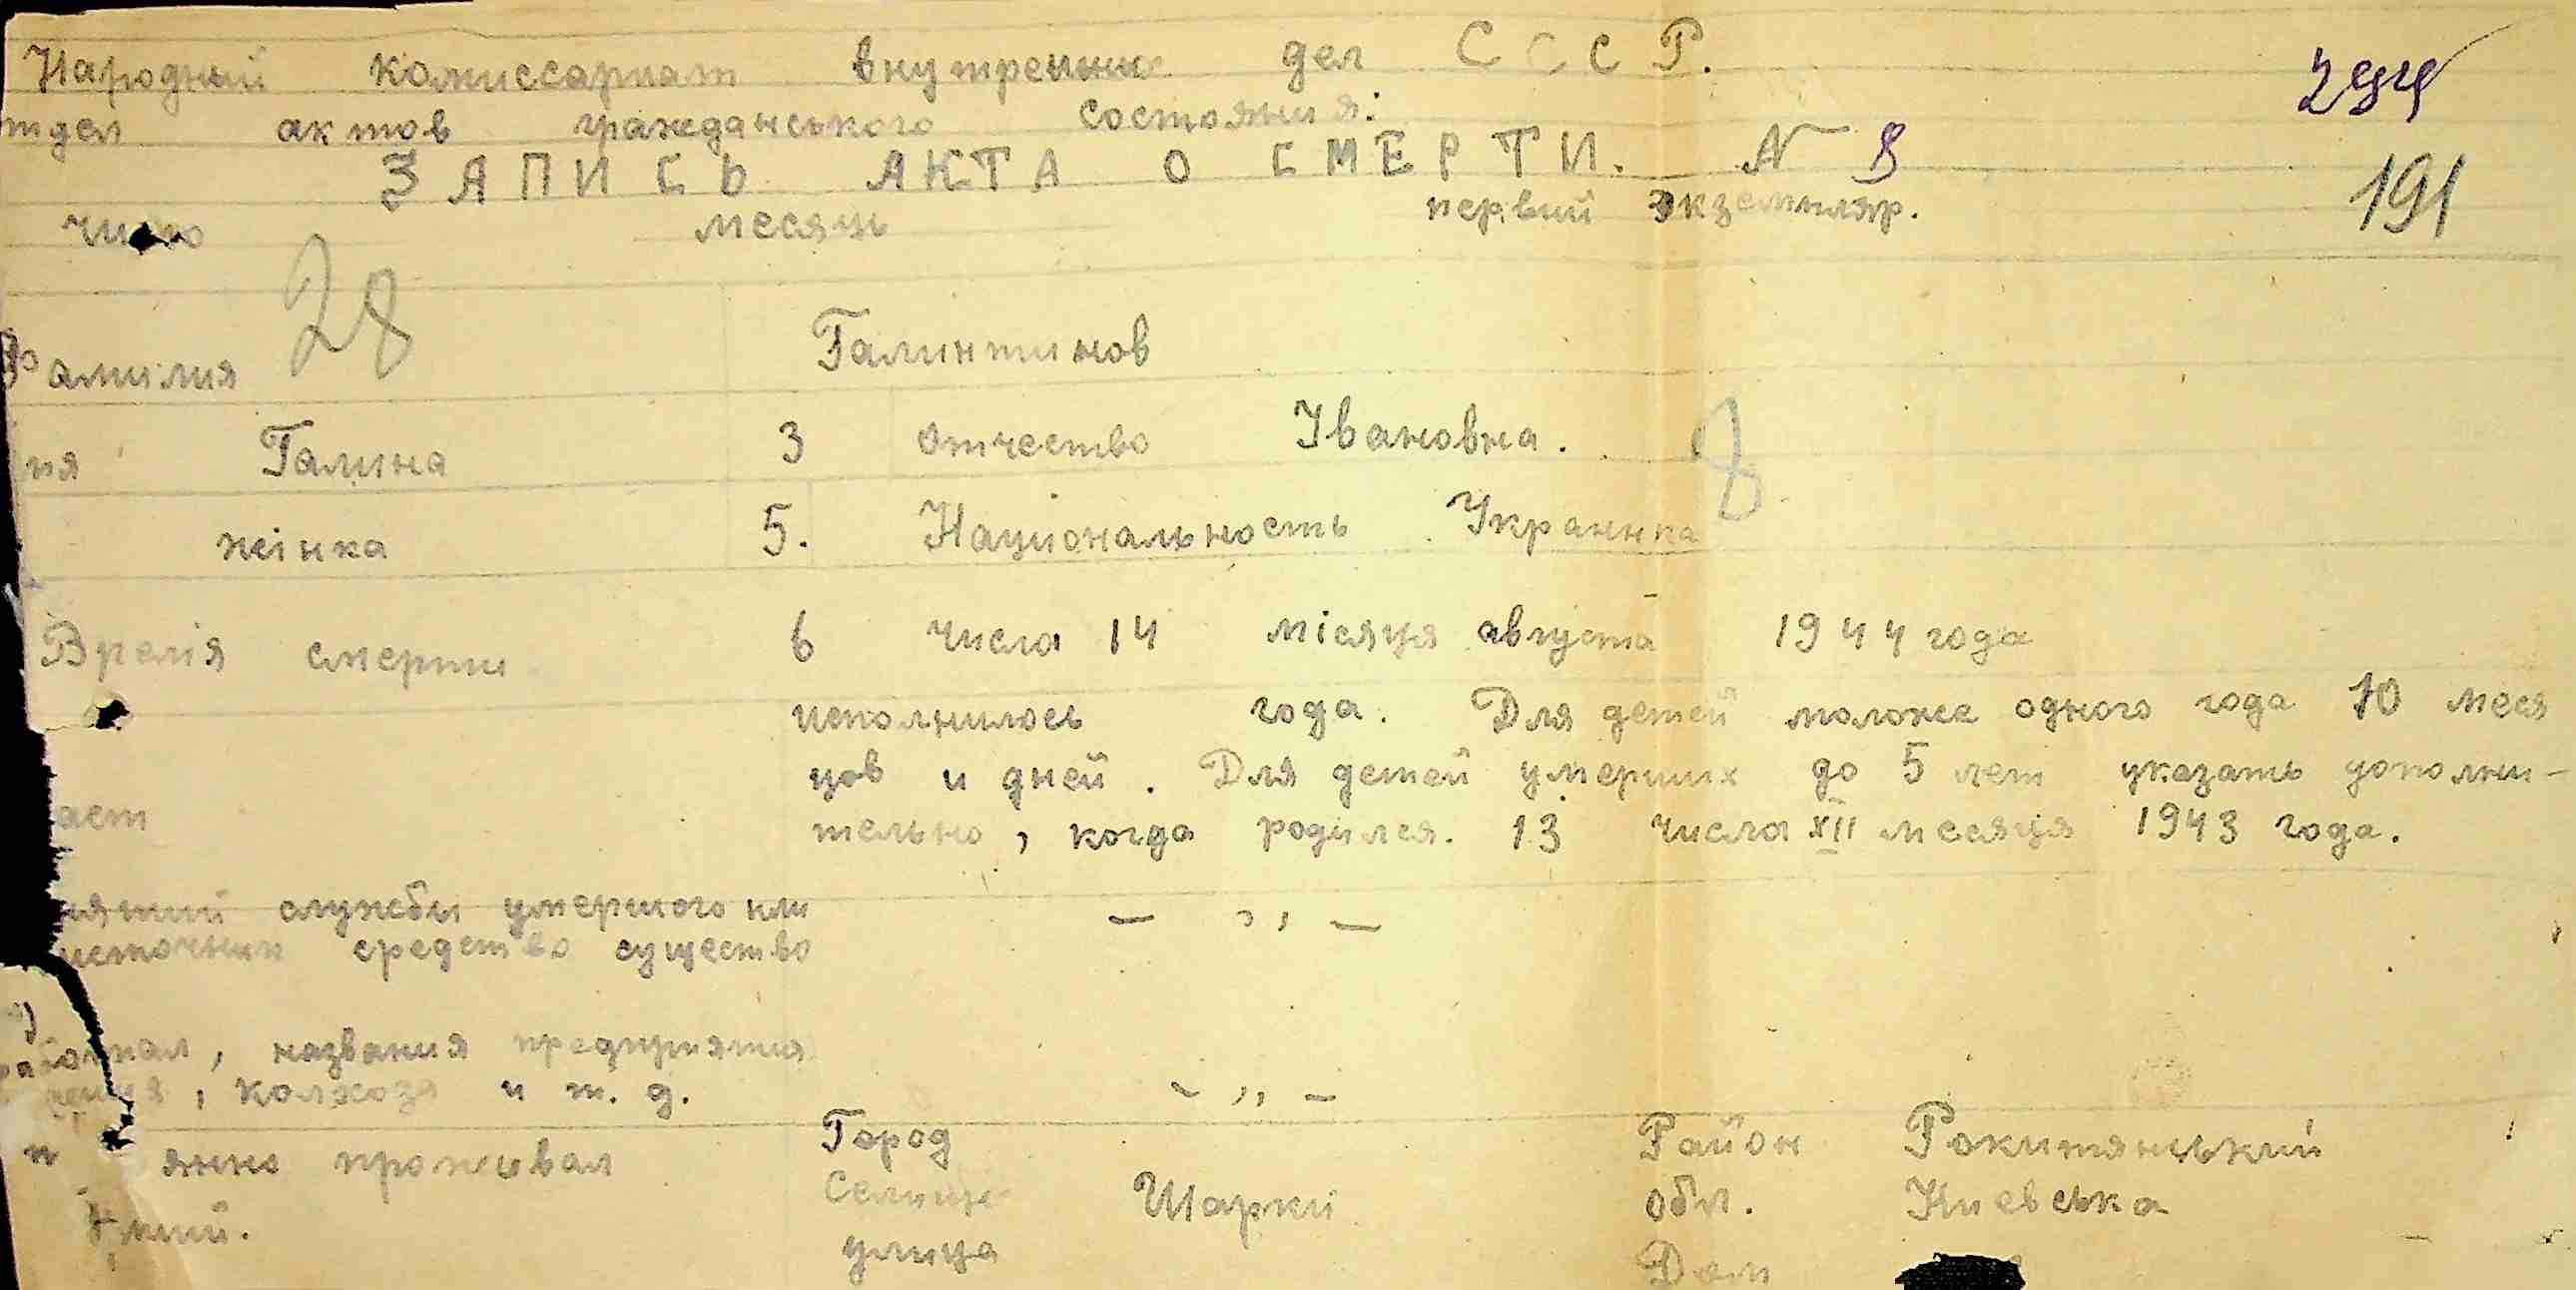 Народный комиссариат внутрених дел СССР.
тдел актов гражданського состояния:
294
ЗАПИСЬ АКТА О СМЕРТИ. N 8
первий экземпляр.
191
число месяць
28
Фамилия Галинтинов
мя Галина 3 отчество Івановна.
8
жінка 5. Національность Украинка
Времія смерти 6 числа 14 місяця августа 1944 года
исполнилось года. Для детей моложе одного года 10 меся
цов и дней. Для детей умерших до 5 лет указать дополни-
аст тельно, когда родился. 13 числа XII месяця 1943 года.
нятий службы умершого или — ,, —
источник средство существо
ботал, названия предприятия
, колхоза и т. д. - ,, -
янно проживал Город Район Рокитянський
Шарки обл. Киевська
улица Дом